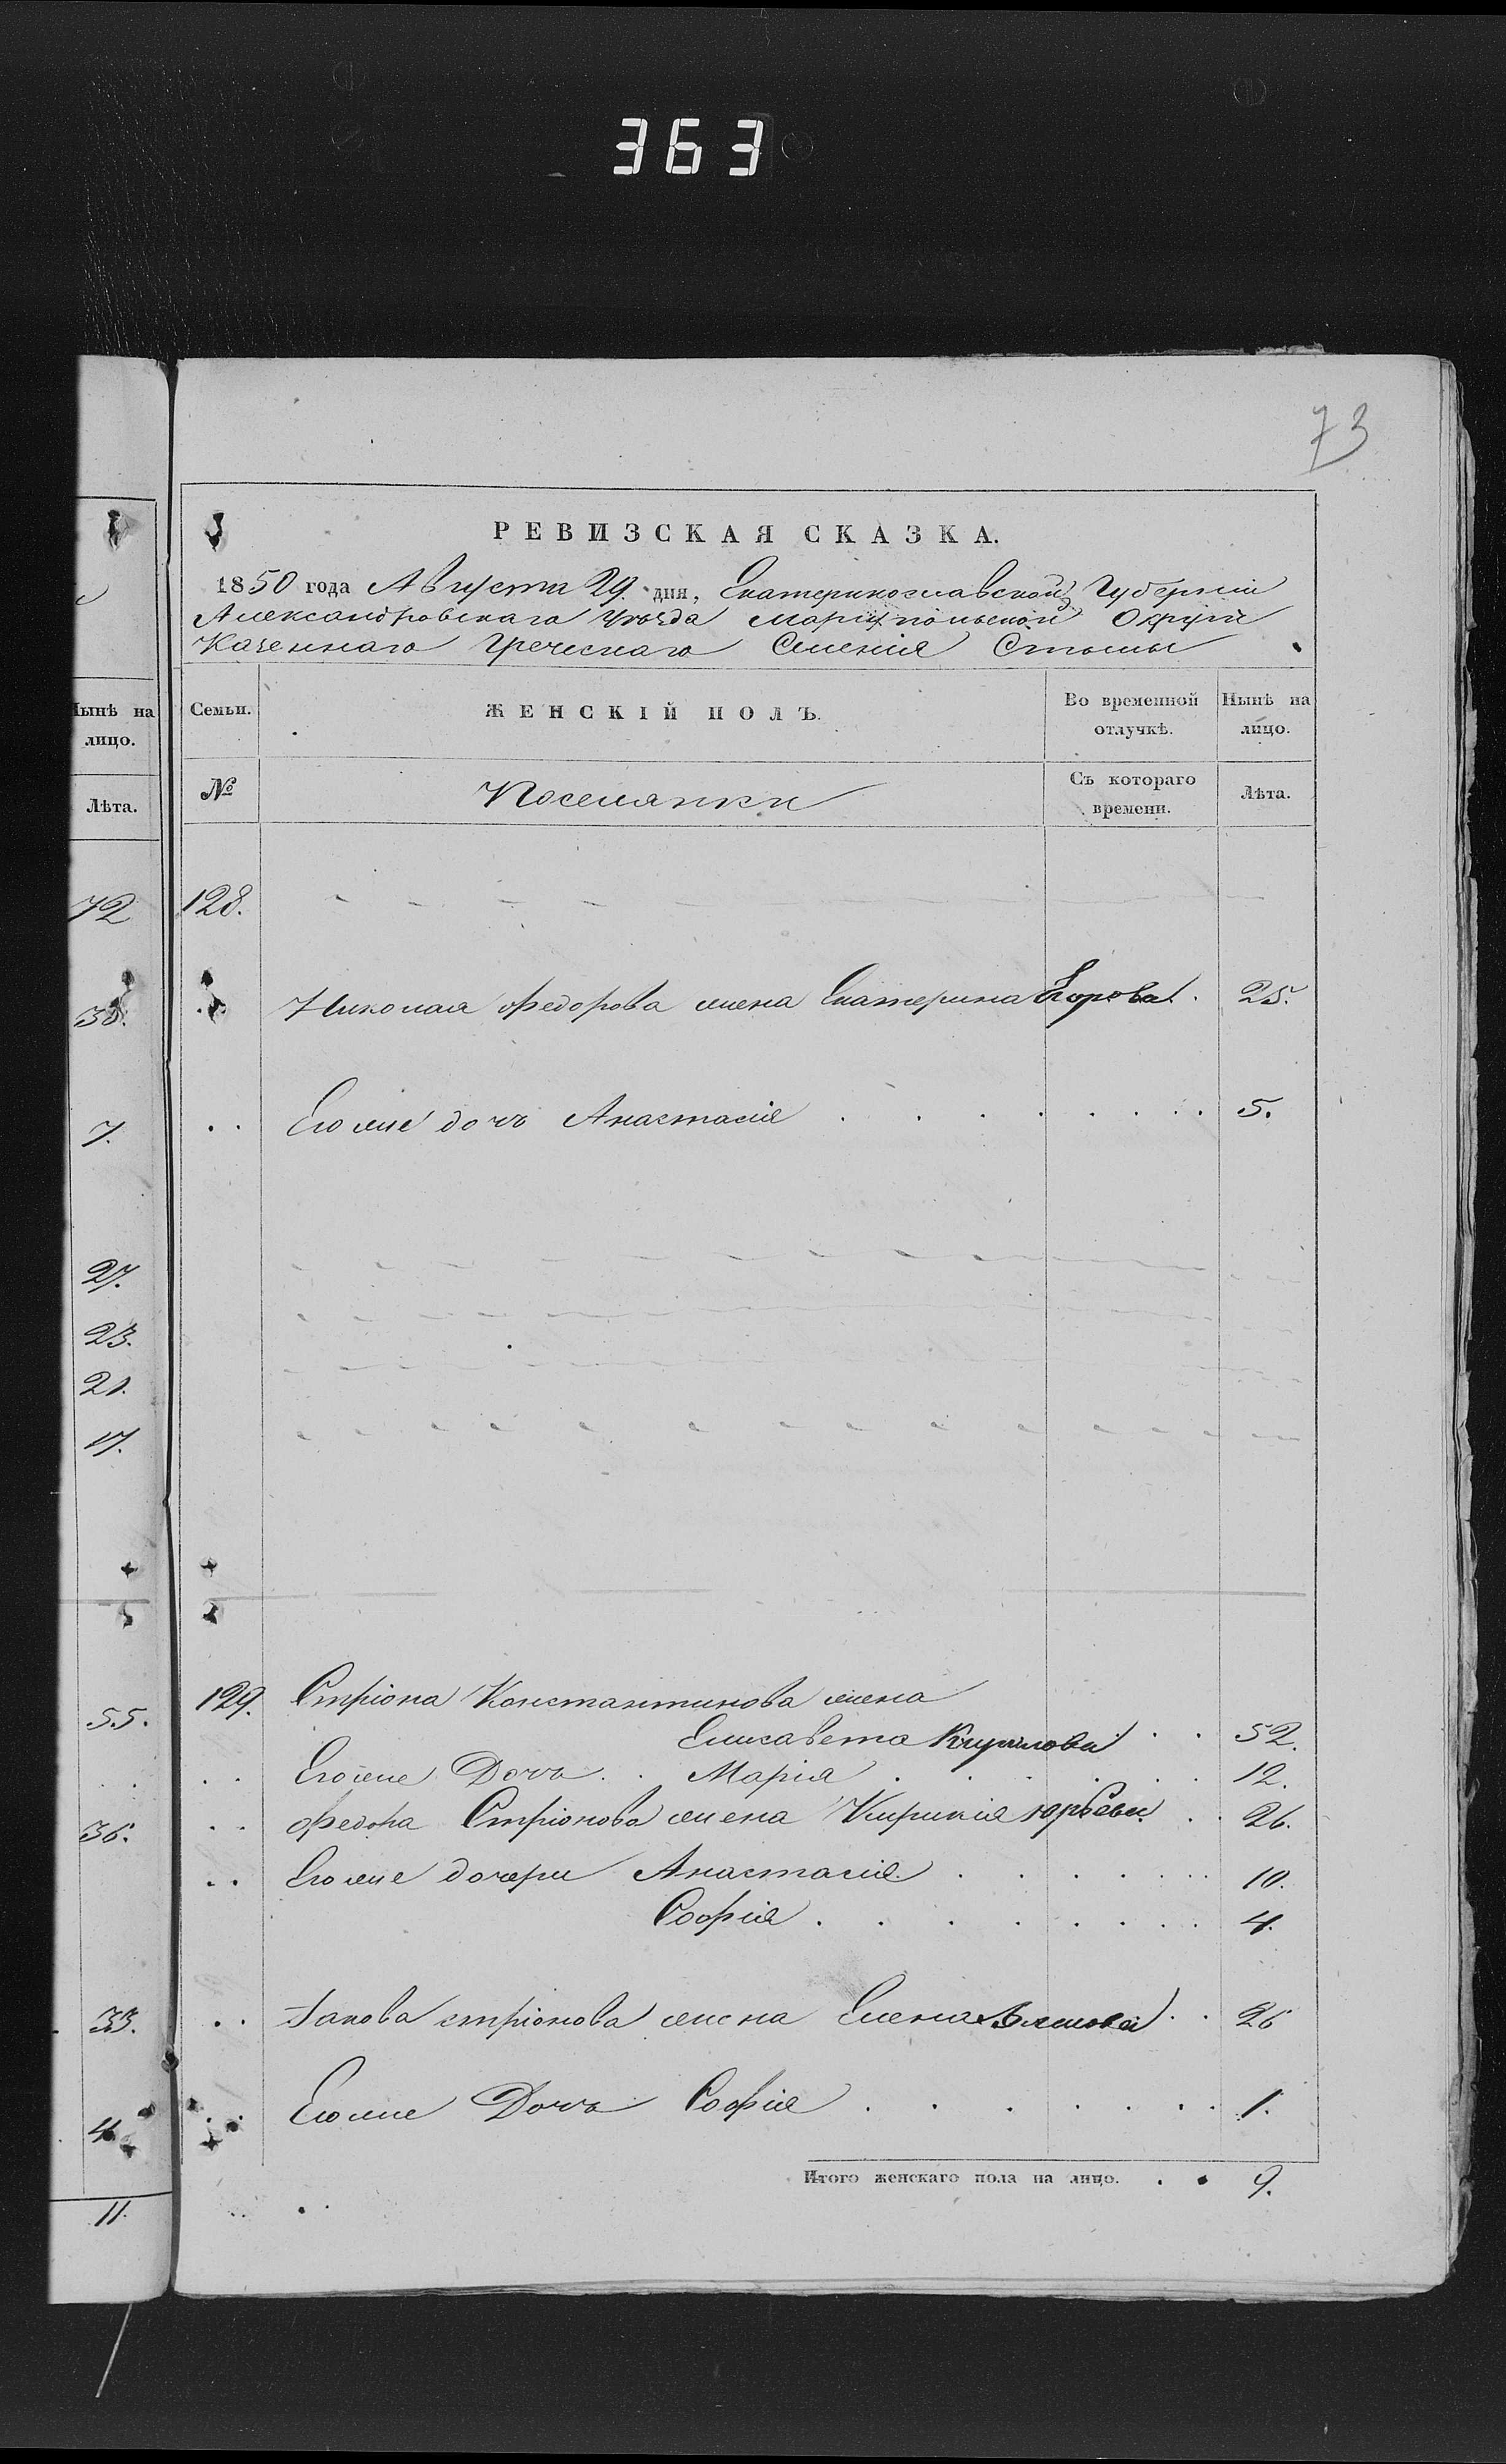 363
73
РЕВИЗСКАЯ СКАЗКА.
1850 года Августа 29. дня, Екатеринославской Губерніи
Александровскаго Уѣзда Маріупольской Округи
Казеннаго Греческаго Селенія Стылы
Нынѣ на лицо.
Семьи.
ЖЕНСКІЙ ПОЛЪ.
Во временной отлучкѣ.
Нынѣ на лицо.
Лѣта.
№
Поселянки
Съ котораго времени.
Лѣта.
72
128.
Николая Федорова жена Екатерина Егорова . 25.
7.
Его же дочь Анастасія . . . . . . . . 5.
27.
23.
21.
17.
55.
129. Стріона Константинова жена
Елисавета Кирилова . . 52.
Его же Дочь . . Марія . . . . . . 12.
36.
Федора Стріонова жена Кирикія Юрьева . . 26.
Его же дочери Анастасія . . . . . . . 10.
Софія . . . . . . . . 4.
33.
Іакова Стріонова жена Елена . . 26
4.
Его же Дочь Софія . . . . . . . . 1.
Итого женскаго пола на лицо. . . 9.
11.